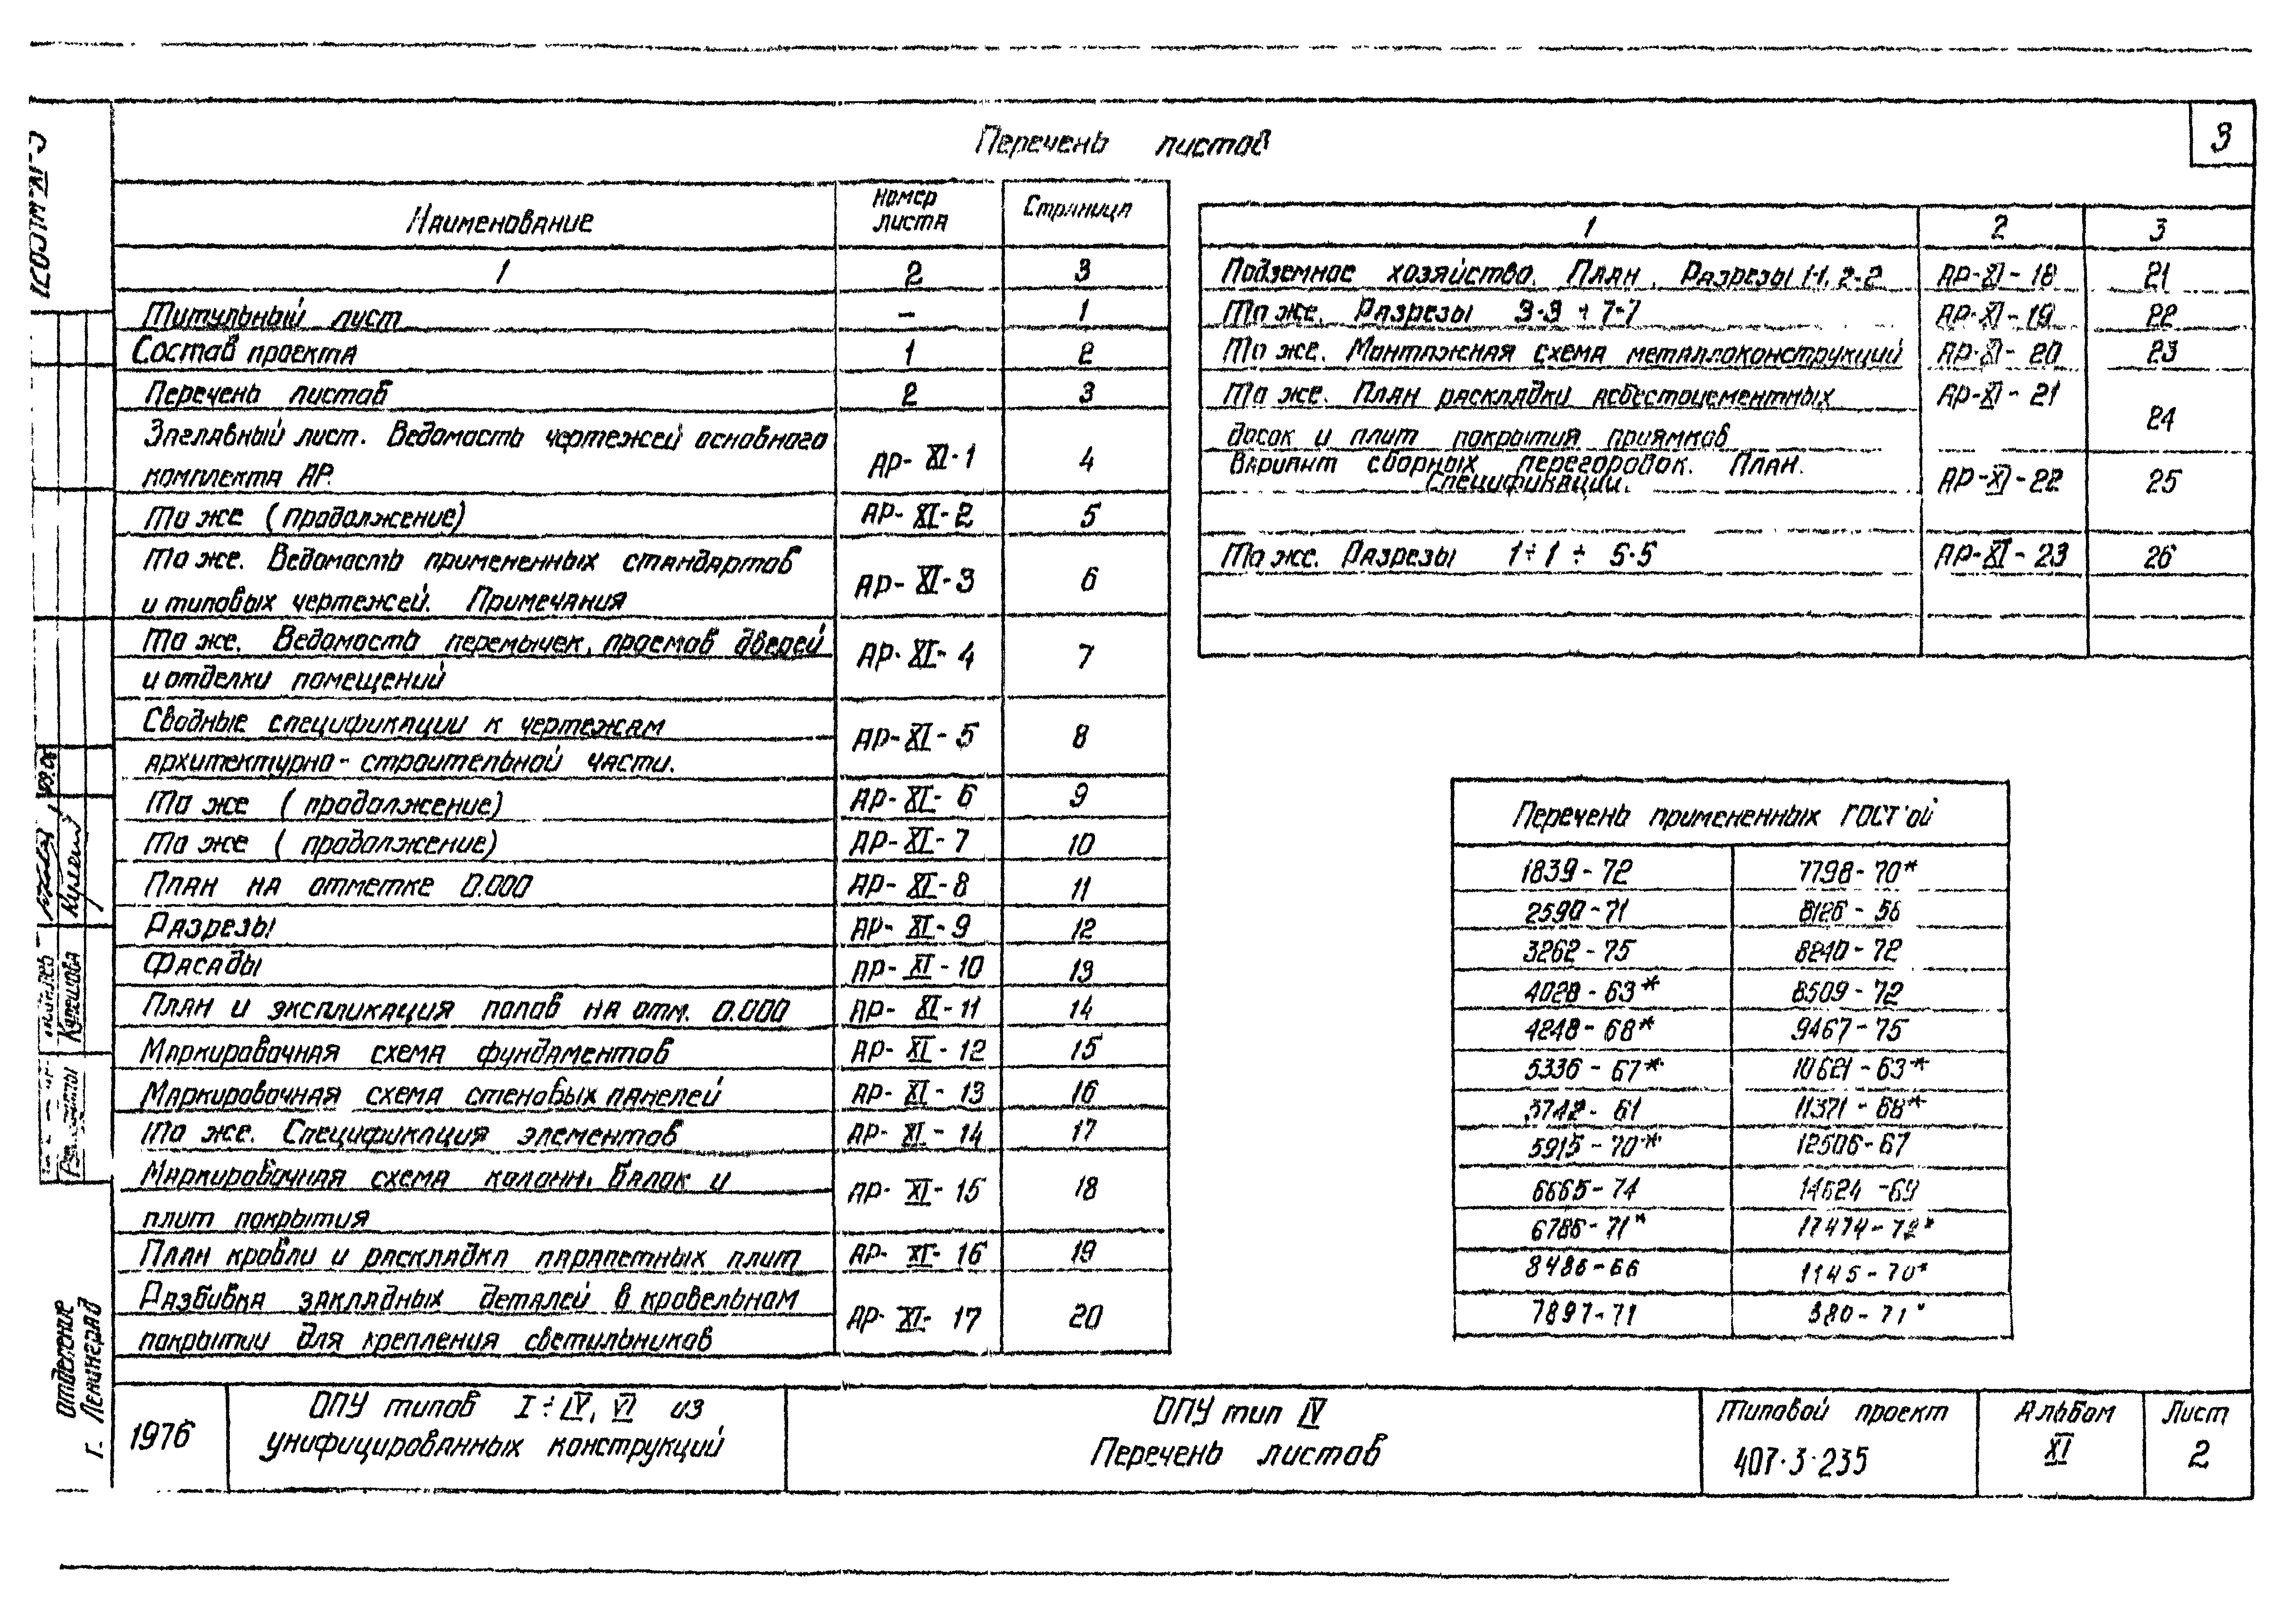 3
Перечень листов
Наименование Номер листа Страница
1 2 3
Титульный лист – 1
Состав проекта 1 2
Перечень листов 2 3
Заглавный лист. Ведомость чертежей основного
комплекта АР. АР-XI-1 4
То же (продолжение) АР-XI-2 5
То же. Ведомость примененных стандартов
и типовых чертежей. Примечания АР-XI-3 6
То же. Ведомость перемычек, проемов дверей
и отделки помещений АР-XI-4 7
Сводные спецификации к чертежам
архитектурно-строительной части. АР-XI-5 8
То же (продолжение) АР-XI-6 9
То же (продолжение) АР-XI-7 10
План на отметке 0.000 АР-XI-8 11
Разрезы АР-XI-9 12
Фасады АР-XI-10 13
План и экспликация полов на отм. 0.000 АР-XI-11 14
Маркировочная схема фундаментов АР-XI-12 15
Маркировочная схема стеновых панелей АР-XI-13 16
То же. Спецификация элементов АР-XI-14 17
Маркировочная схема колонн, балок и
плит покрытия АР-XI-15 18
План кровли и раскладка парапетных плит АР-XI-16 19
Разбивка закладных деталей в кровельном
покрытии для крепления светильников АР-XI-17 20
1 2 3
Подземное хозяйство. План. Разрезы 1-1, 2-2 АР-XI-18 21
То же. Разрезы 3-3 ÷ 7-7 АР-XI-19 22
То же. Монтажная схема металлоконструкций АР-XI-20 23
То же. План раскладки асбестоцементных АР-XI-21
досок и плит покрытия приямков 24
Вариант сборных перегородок. План.
Спецификации. АР-XI-22 25
То же. Разрезы 1÷1 ÷ 5-5 АР-XI-23 26
Перечень примененных ГОСТ'ой
1839-72 7798-70*
2590-71 8126-56
3262-75 8240-72
4028-63* 8509-72
4248-68* 9467-75
5336-67* 10621-63*
5742-61 11371-68*
5915-70* 12506-67
6665-74 14624-69
6786-71* 17474-72*
8486-66 1145-70*
7897-71 380-71*
Отделение
г. Ленинград
Капешова
1976
ОПУ типов I÷IV, VI из
унифицированных конструкций
ОПУ тип IV
Перечень листов
Типовой проект
407-3-235
Альбом
XI
Лист
2